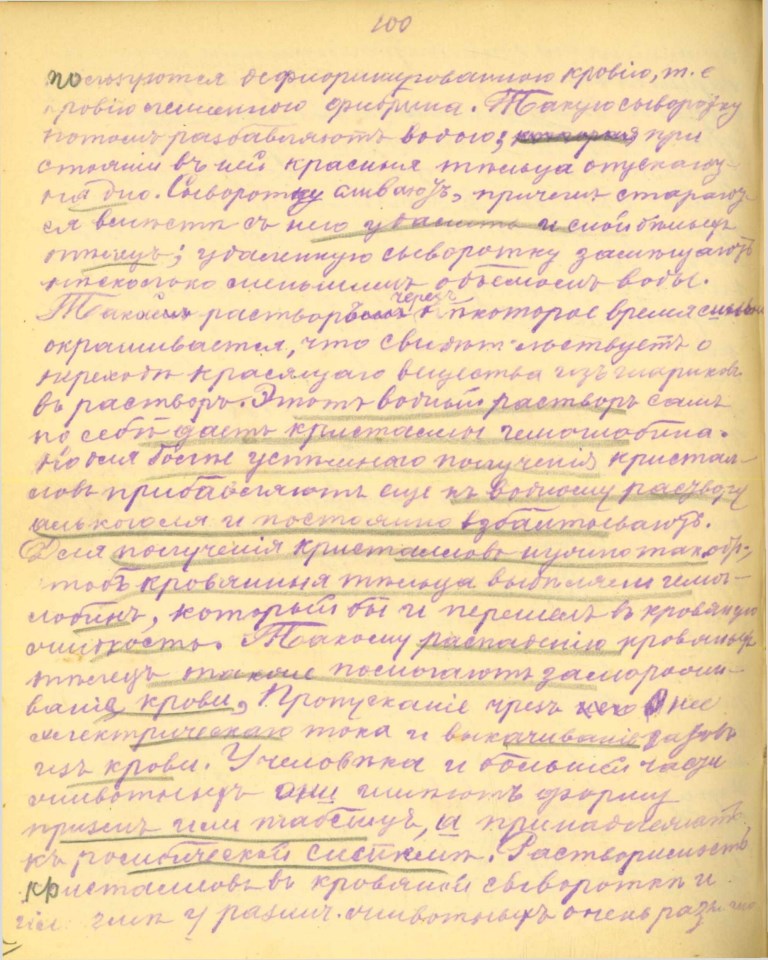 100
пользуются дефибринированною кровію, т. е
кровію лишенною фибрина. Такую сыворотку
потомъ разбавляютъ водою; которая при
стояніи въ ней красныя тѣльца опускаются
на дно. Сыворотку сливаютъ, причемъ стараю-
ся вмѣстѣ съ нею удалить и слой бѣлыхъ
тѣлецъ; удаленную сыворотку замѣщаютъ
нѣсколько меньшимъ объемомъ воды.
Такой растворъ черезъ нѣкоторое время сильно
окрашивается, что свидѣтельствуетъ о
переходѣ красящаго вещества изъ шариковъ
въ растворъ. Этотъ водный растворъ самъ
по себѣ даетъ кристаллы гемоглобина.
Но для болѣе успѣшнаго полученія кристал-
ловъ прибавляютъ еще къ водному раствору
алькоголя и постоянно взбалтываютъ.
Для полученія кристалловъ нужно такъ обр.,
чтобъ кровяныя тѣльца выдѣляли гемо-
глобинъ, который бы и перешелъ въ кровяную
жидкость. Такому распаденію кровяныхъ
тѣлецъ также помогаютъ заморажи-
ваніе крови, Пропусканіе чрезъ нее
электрическаго тока и выкачиваніе газовъ
изъ крови. У человѣка и большей части
животныхъ они имѣютъ форму
призмъ или таблицъ, и принадлежатъ
къ ромбической системѣ. Растворимость
кристалловъ въ кровяной сывороткѣ и
у различ. животныхъ очень различна